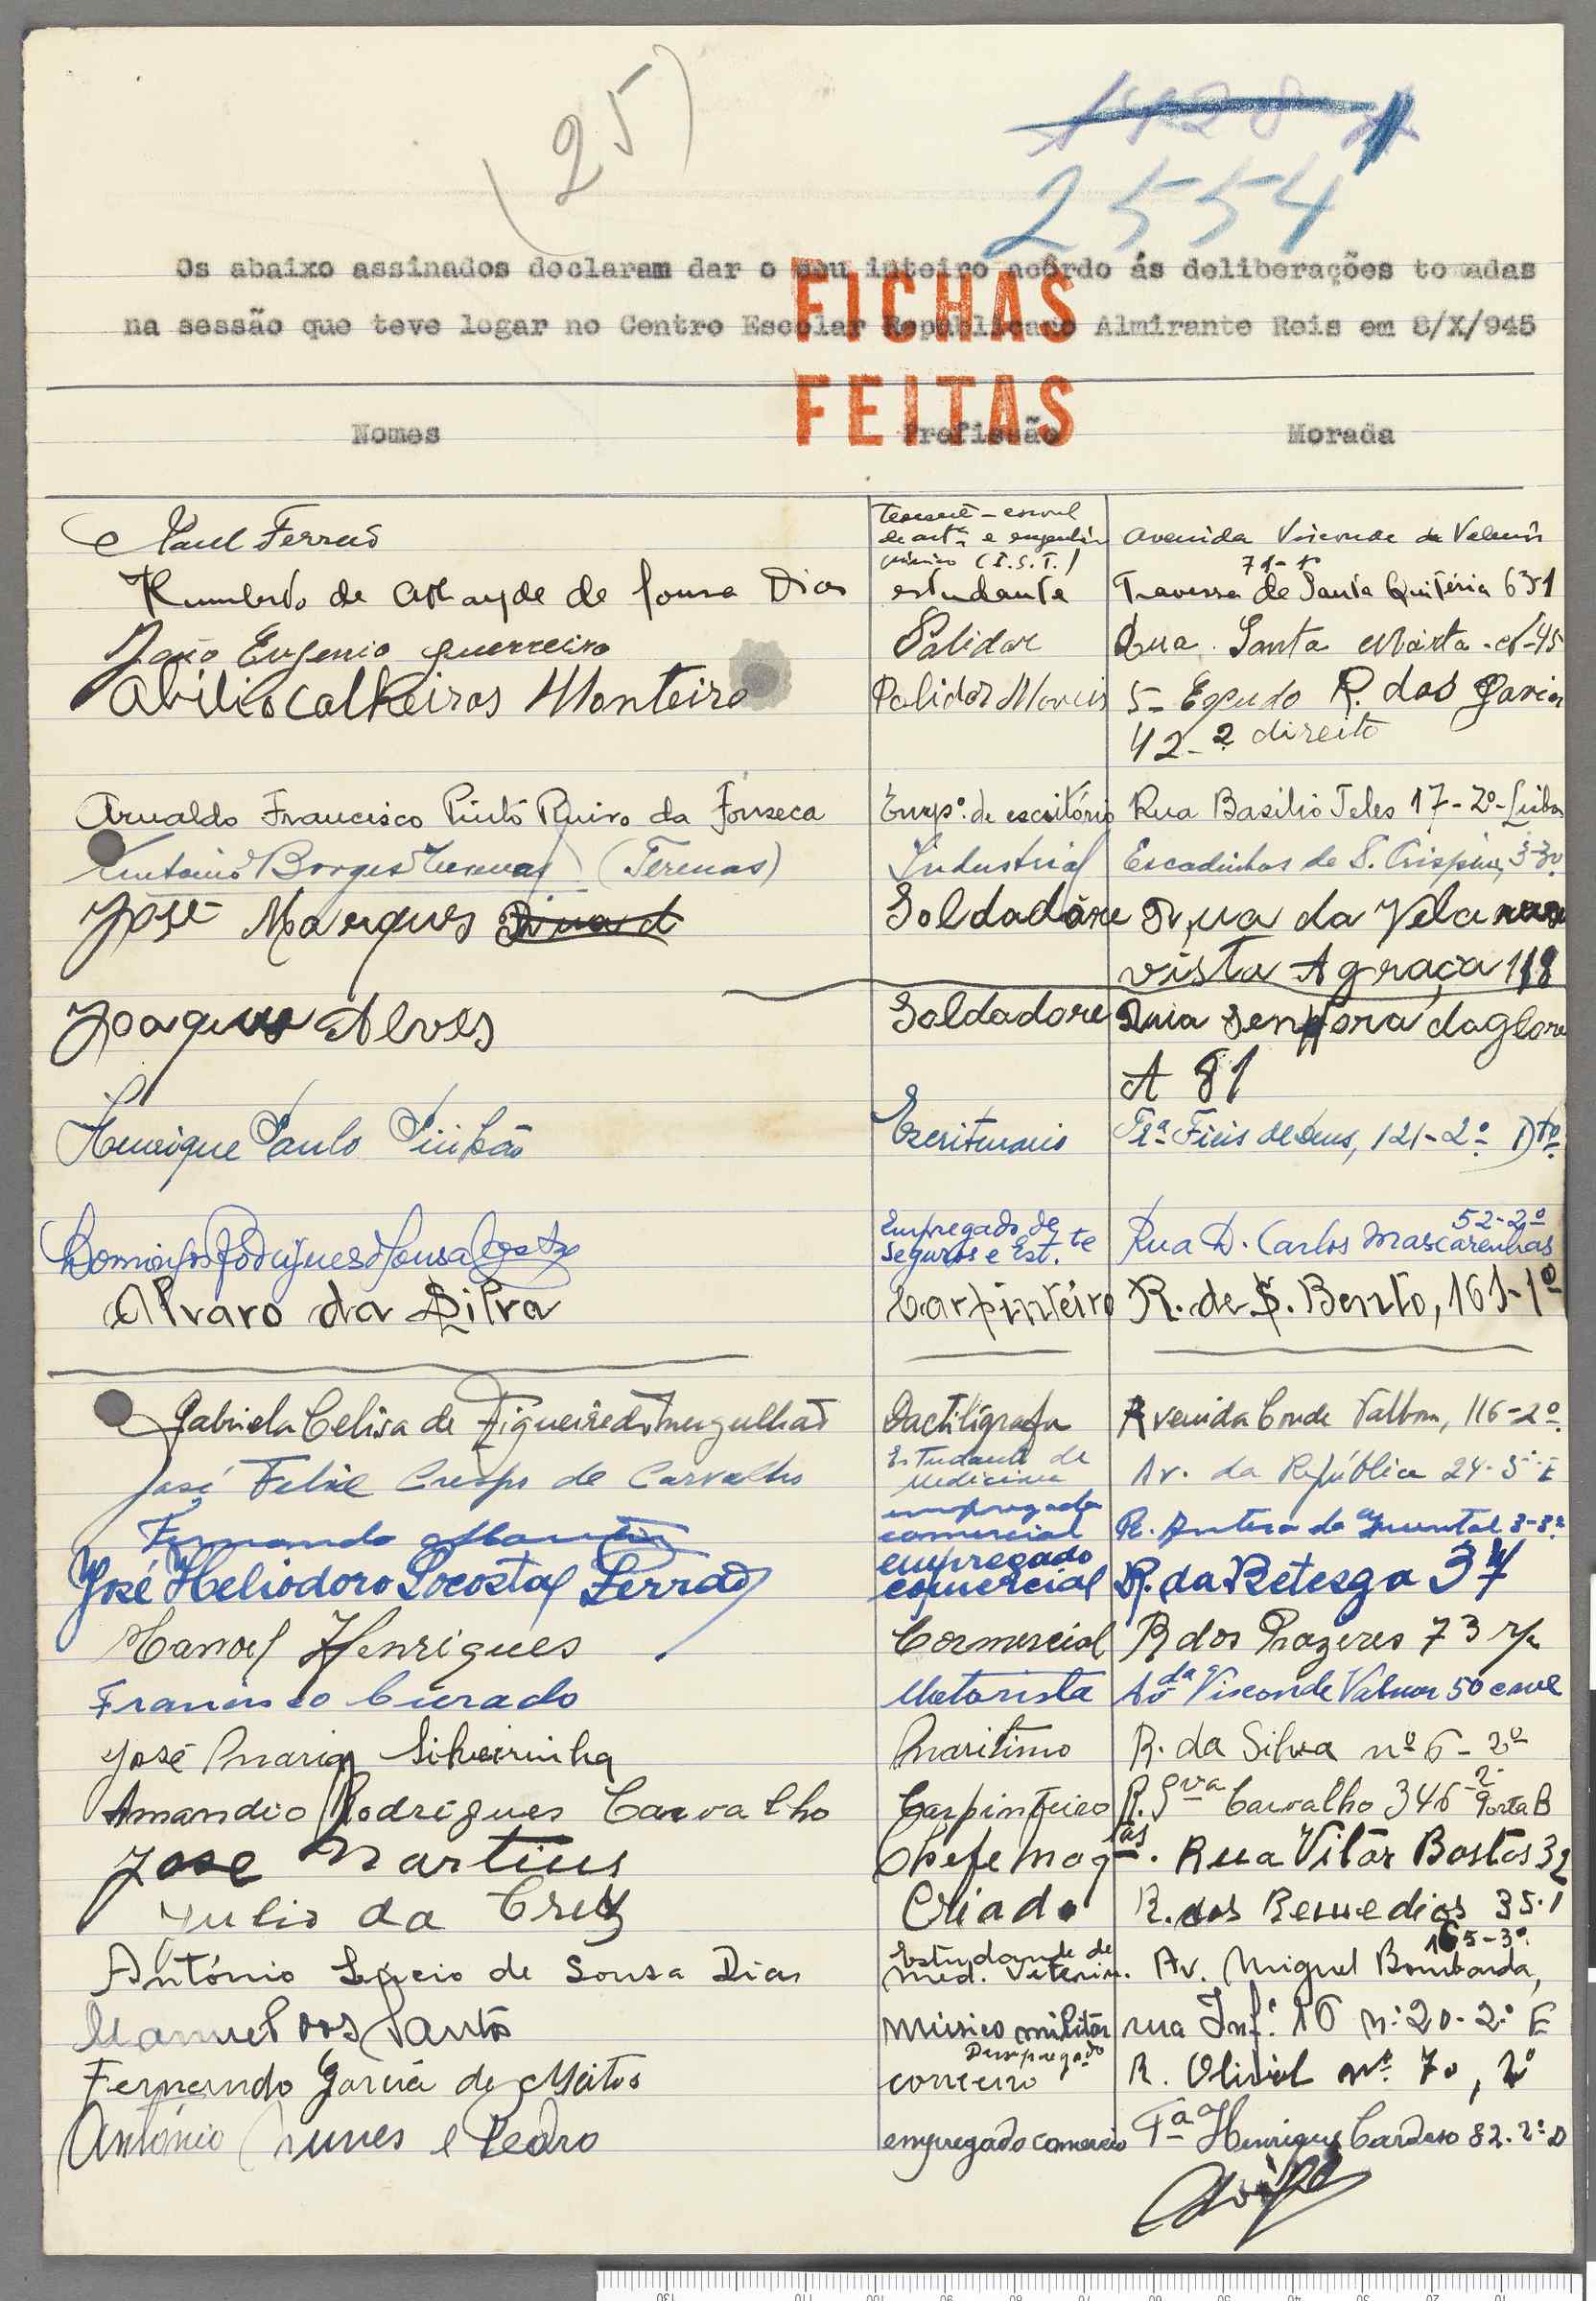 (25)
2554
Os abaixo assinados declaram dar o seu inteiro acôrdo ás deliberações tomadas
na sessão que teve logar no Centro Escolar Republicano Almirante Reis em 8/X/945
FICHAS
FEITAS
Nomes Profissão Morada
Raul Ferrão e (I.S.T.) Avenida Visconde de Valmôr 71-1º
Humberto de Athayde de Sousa Dias estudante Travessa de Santa Quitéria 63-1
João Eugenio Guerreiro Polidor Rua Santa Marta
Abilio Calheiros Monteiro Polidor Moveis 5- R. das
42-2 direito
Arnaldo Francisco Pinto Ruivo da Fonseca Empº. de escritório Rua Basilio Teles 17-2º-Lisboa
Antonio Borges Terenas (Terenas) Industrial Escadinhas de S. Crispim, 3-3º
José Marques Soldadôre Rua da Vela
vista A graça 118
Joaquim Alves Soldadore Rua Senhora da glore
A 81
Henrique Paulo Escriturario Trª Fieis de Deus, 121-2º Dtº
Domingos Rodrigues Sousa Costa Empregado de Seguros e Est.te Rua D. Carlos Mascarenhas 52-2º
Alvaro da Silva Carpinteiro R. de S. Bento, 161-1º
Gabriela Celisa de Figueirêdo Mergulhão Dactilígrafa Avenida Conde Valbom, 116-2º
José Felix Crespo de Carvalho Estudante de Medicina Av. da República 24-5º-E
Fernando Martins empregado comercial R. Antero do Quental 3-3º
José Heliodoro Locosta Ferrão empregado comercial R. da Betesga 37
Manoel Henriques Comercial R dos Prazeres 73 r/c
Francisco Curado Motorista Avda Visconde Valmor 50 cave
José Maria Silveirinha Maritimo R. da Silva nº 6-2º
Amandio Rodrigues Carvalho Carpinteiro R. Sva Carvalho 346-2º Porta B
Jose Martins Chefe maqas. Rua Vitor Bastos 32
Julio da Cruz Criado R. dos Remedios 35-1
António Lúcio de Sousa Dias Estudante de Med. Veterin. Av. Miguel Bombarda, 165-3º
Manuel dos Santos Músico militar rua Inf. 16 nº 20-2º E
Fernando Garcia de Matos correeiro Desempregado R. Olival nº 70, 2º
António Nunes e Pedro empregado comercio Tª Henrique Cardoso 82-2º D